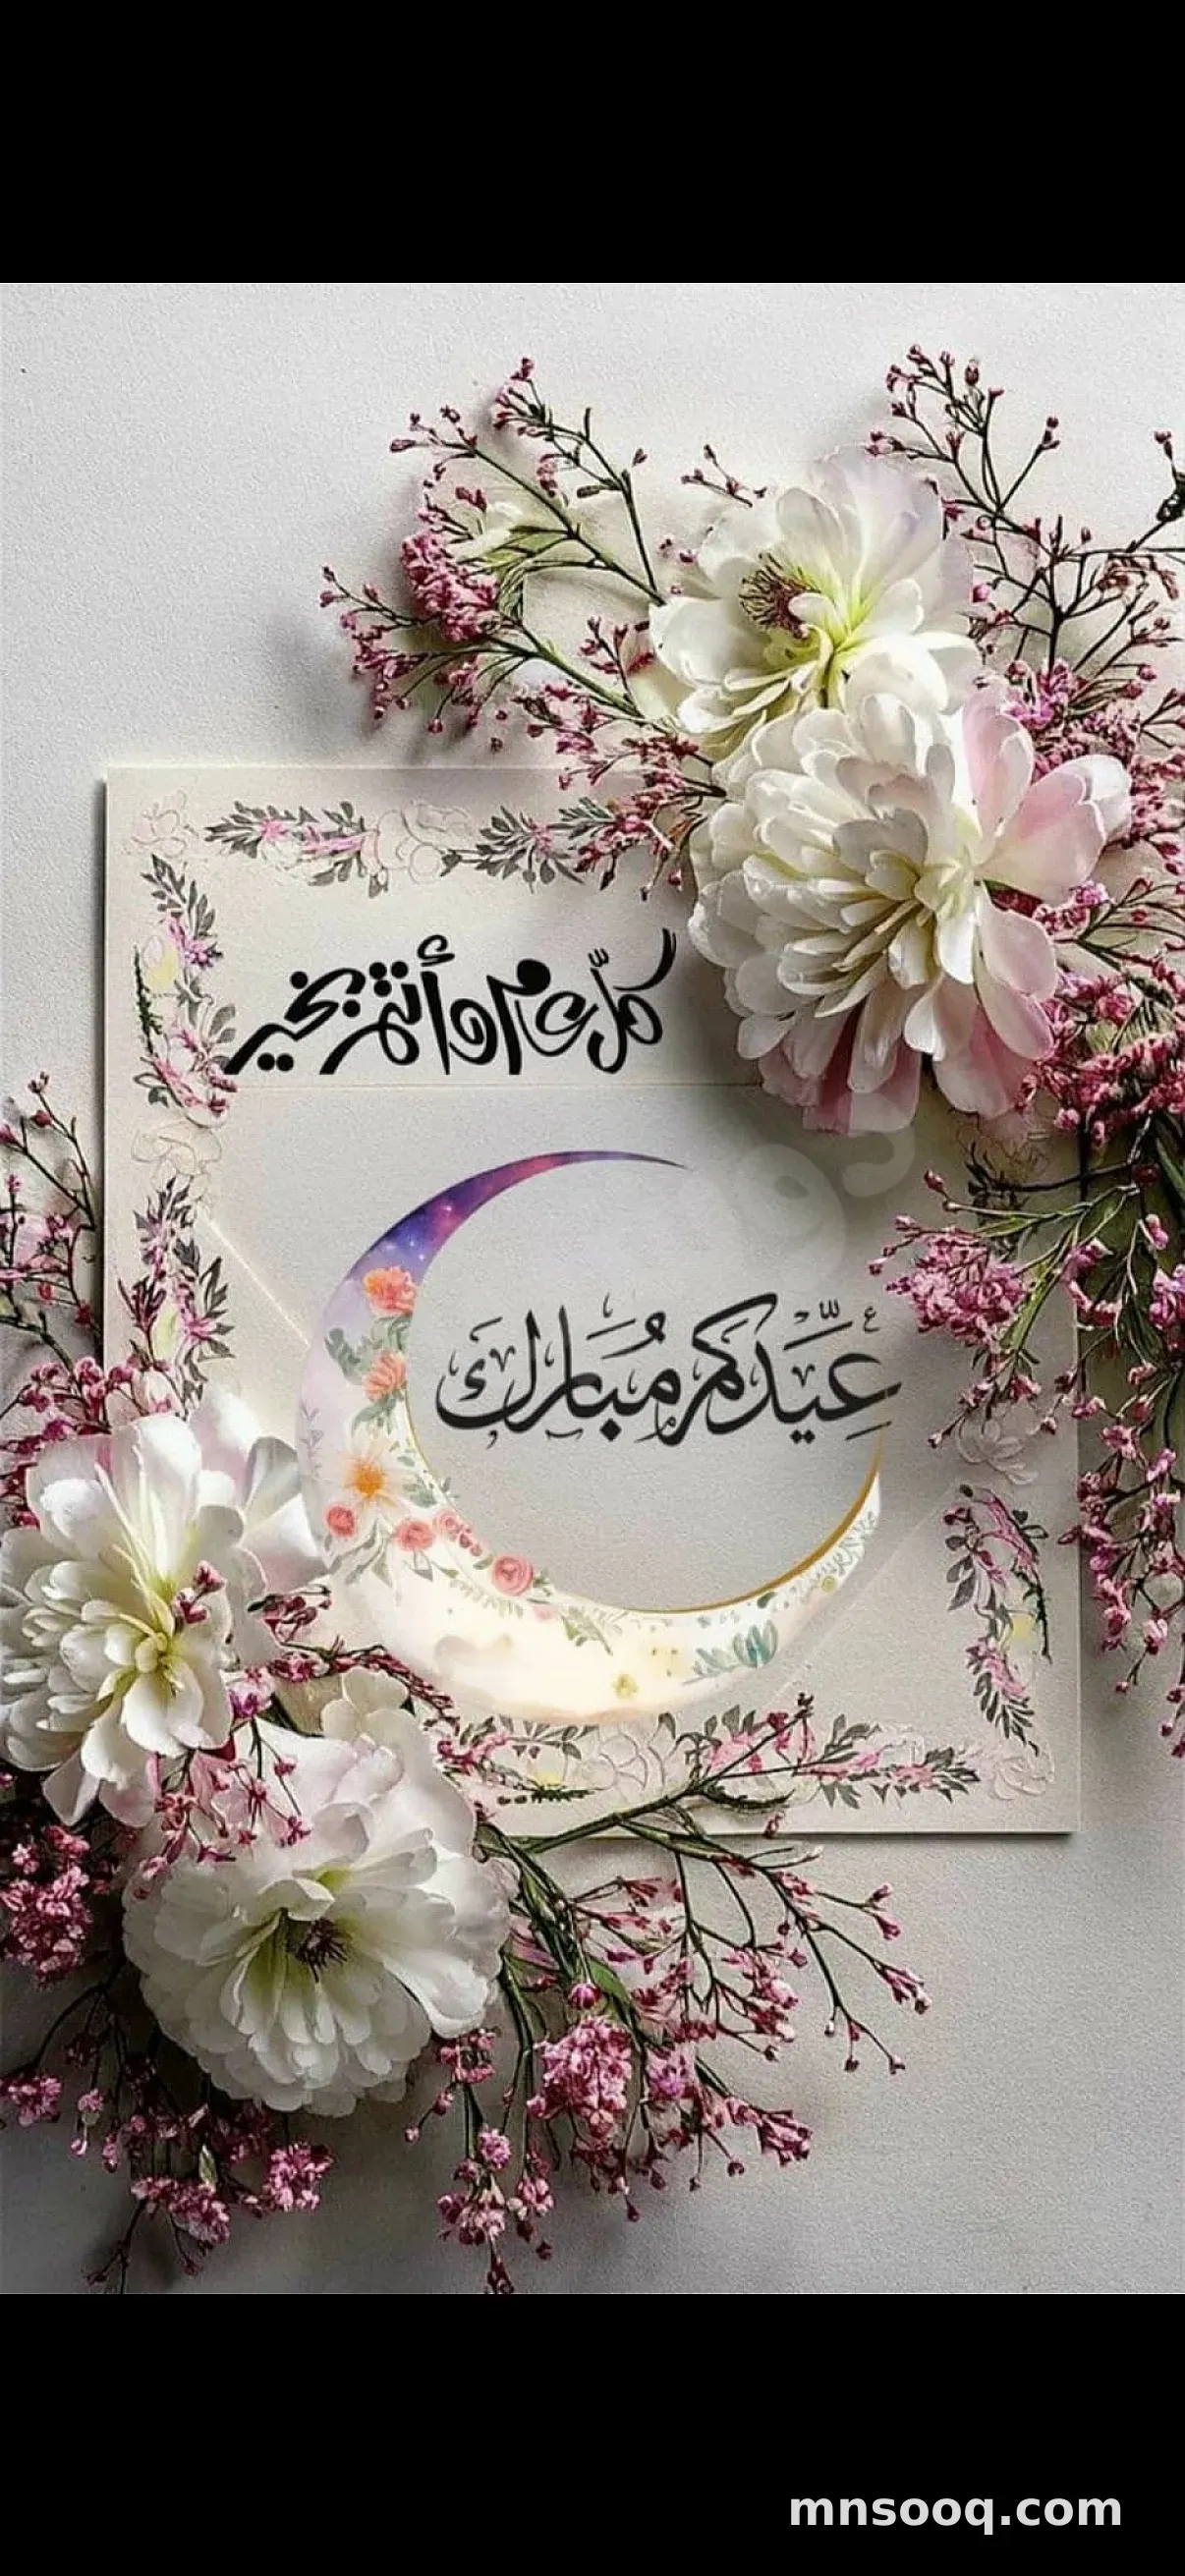 كلّ عام وأنتم بخير
عيدكم مبارك
mnsooq.com